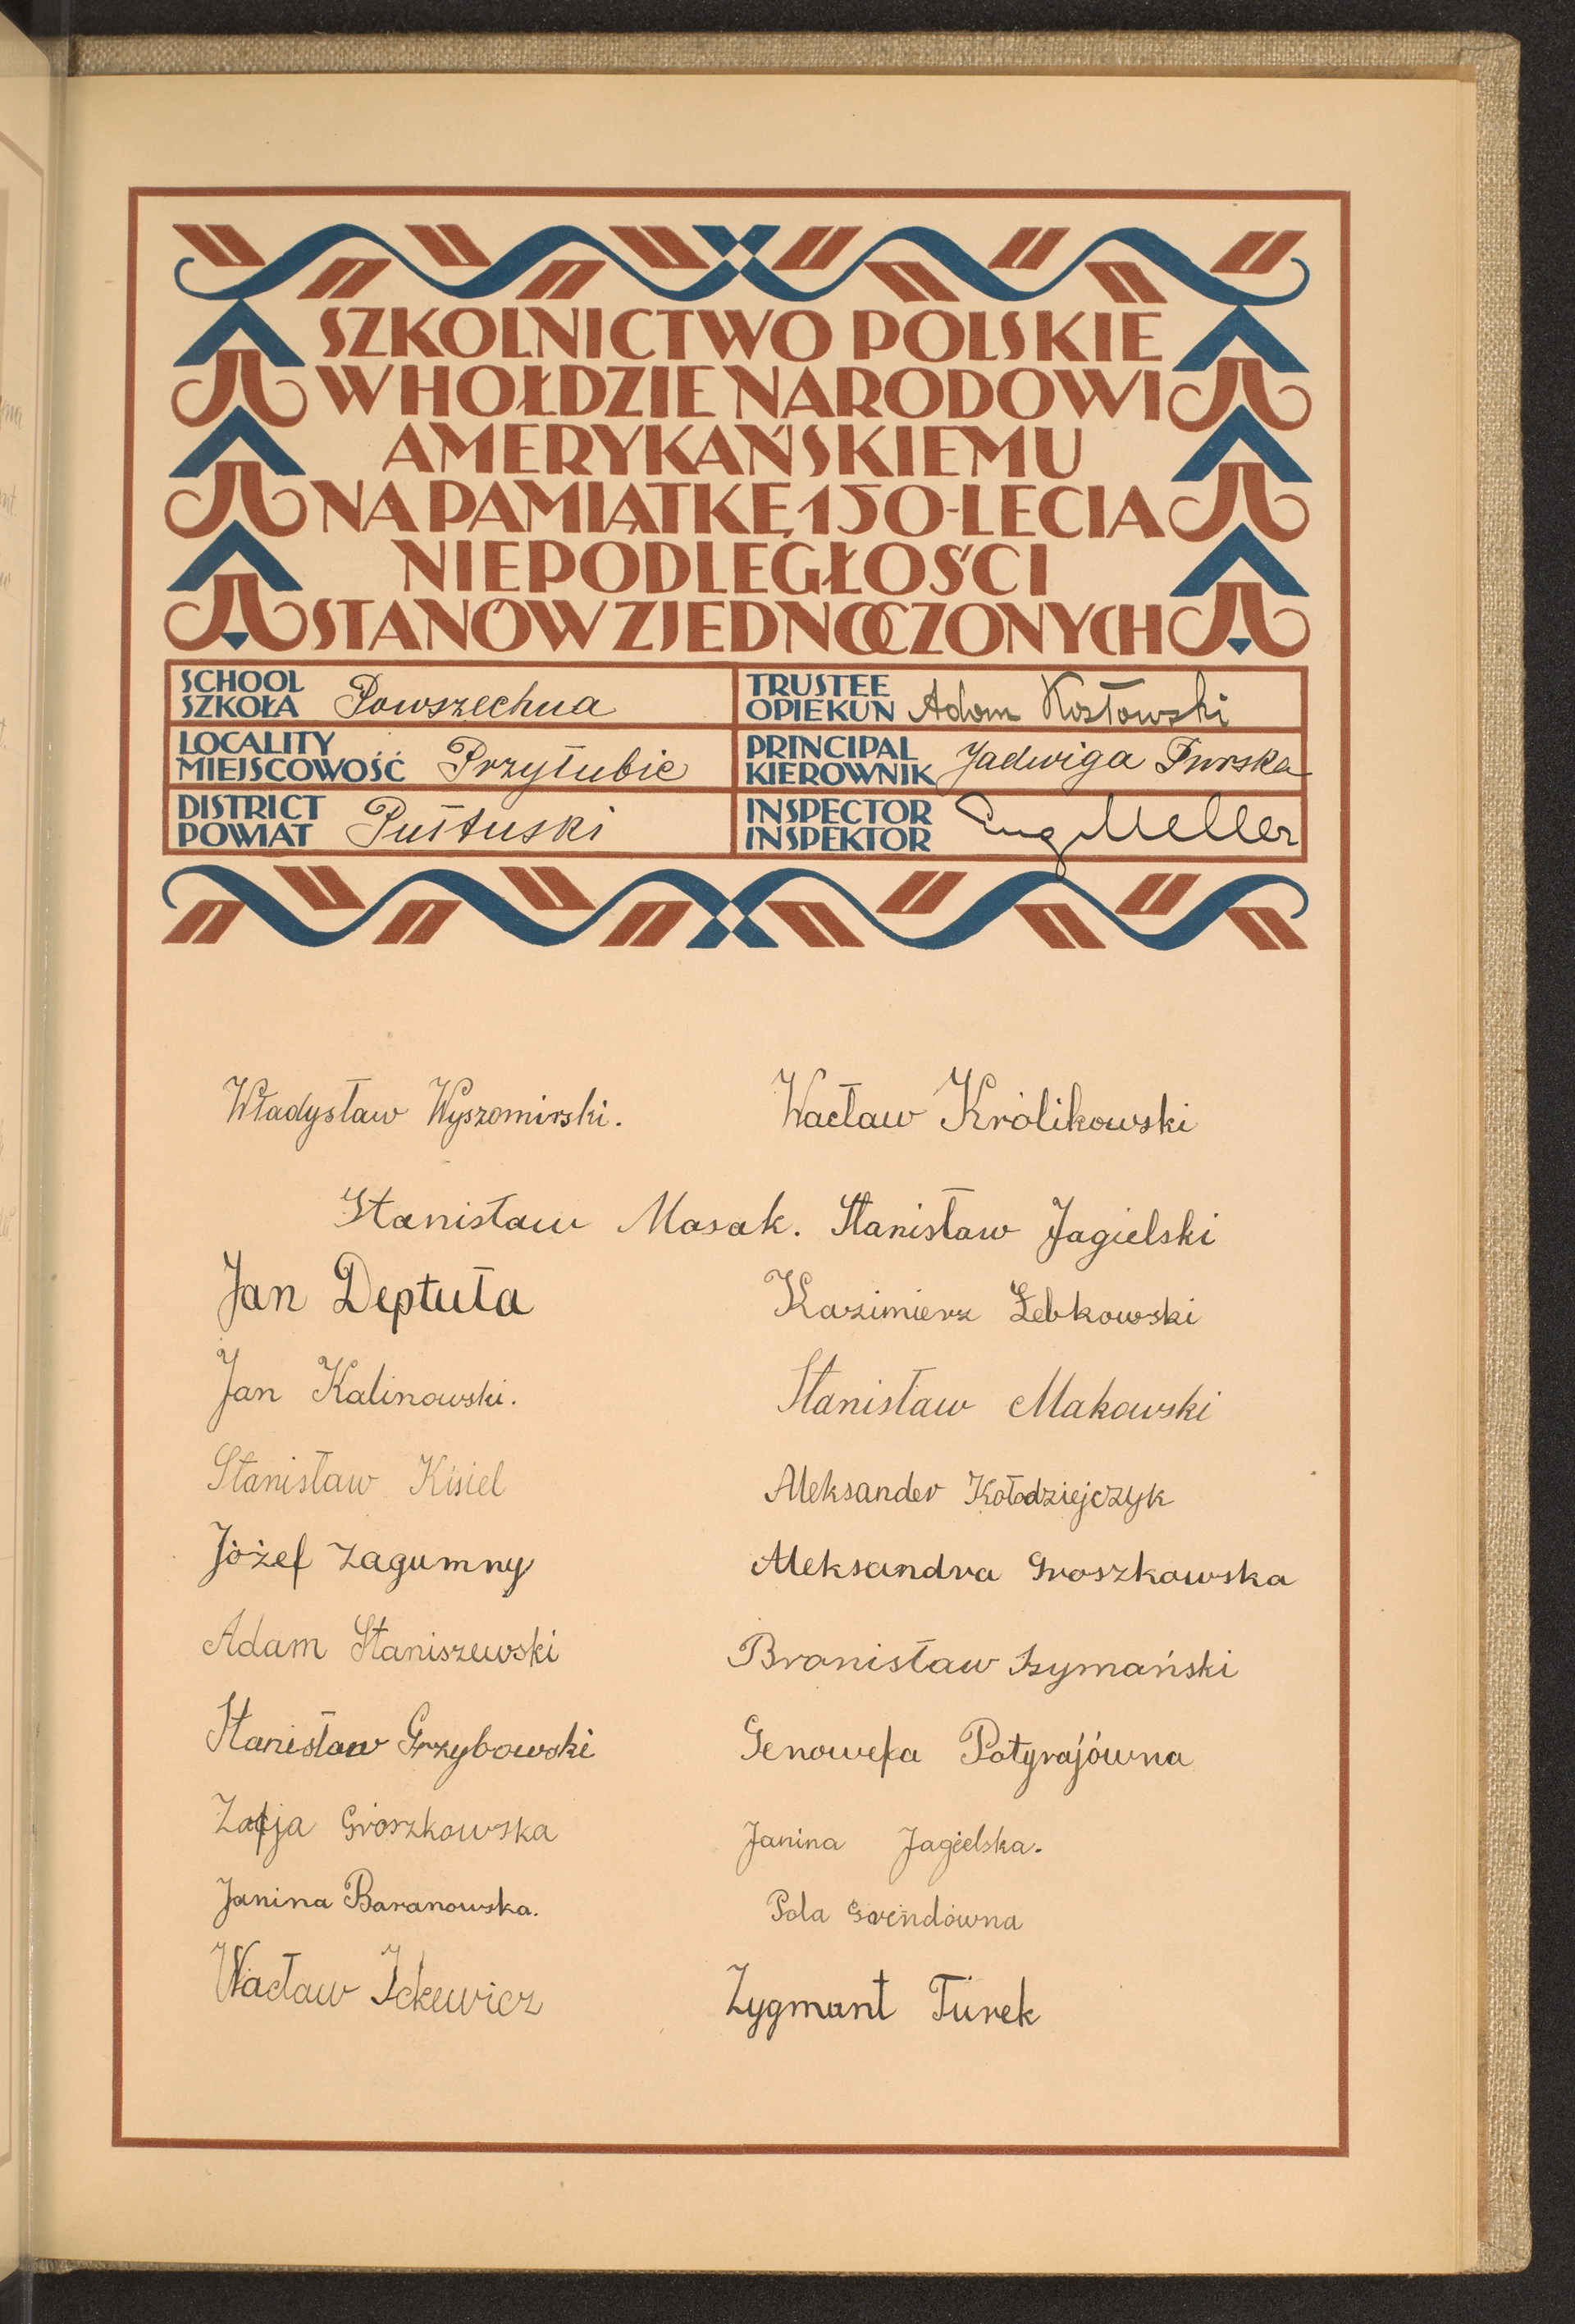 SZKOLNICTWO POLSKIE
W HOŁDZIE NARODOWI
AMERYKAŃSKIEMU
NA PAMIĄTKĘ 150-LECIA
NIEPODLEGŁOŚCI
STANÓW ZJEDNOCZONYCH
SCHOOL
SZKOŁA Powszechna
TRUSTEE
OPIEKUN Adam Kozłowski
LOCALITY
MIEJSCOWOŚĆ Przytubie
PRINCIPAL
KIEROWNIK Jadwiga
DISTRICT
POWIAT Pułtuski
INSPECTOR
INSPEKTOR Eug Meller
Władysław Wyszomirski. Wacław Królikowski
Stanisław Masak. Stanisław Jagielski
Jan Deptuła Kazimierz Łebkowski
Jan Kalinowski. Stanisław Makowski
Stanisław Kisiel Aleksander Kołodziejczyk
Józef Zagumny Aleksandra Groszkowska
Adam Staniszewski Bronisław Szymański
Stanisław Grzybowski Genowefa Potyrajówna
Zofja Groszkowska Janina Jagielska.
Janina Baranowska. Pola
Wacław Ickewicz Zygmunt Turek